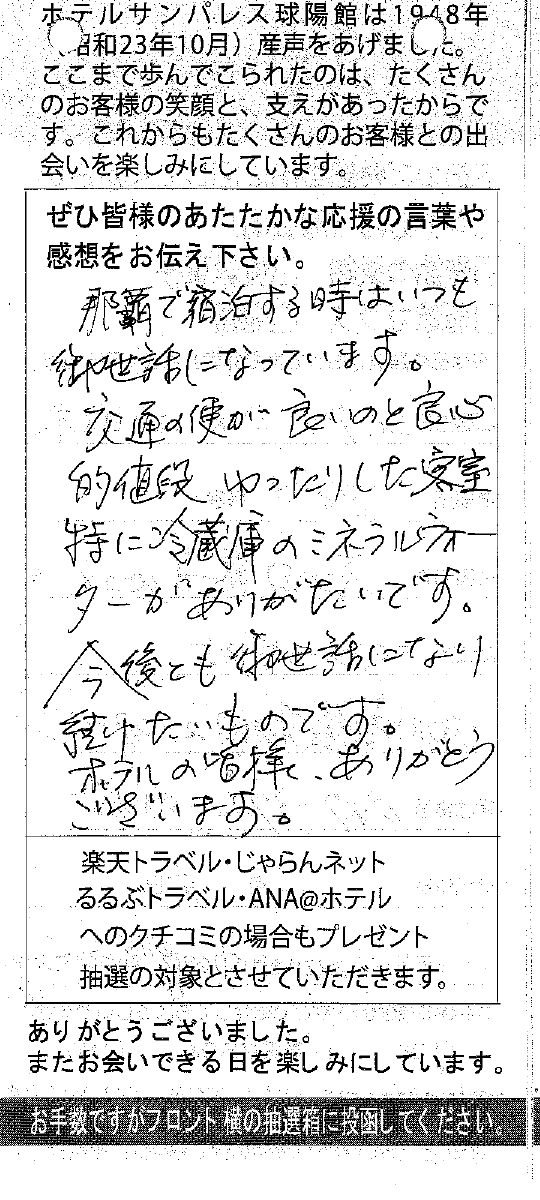 ホテルサンパレス球陽館は1948年
（昭和23年10月）産声をあげました。
ここまで歩んでこられたのは、たくさん
のお客様の笑顔と、支えがあったからで
す。これからもたくさんのお客様との出
会いを楽しみにしています。
ぜひ皆様のあたたかな応援の言葉や
感想をお伝え下さい。
那覇で宿泊する時はいつも
御世話になっています。
交通の便が良いのと良心
的値段 ゆったりした客室
特に冷蔵庫のミネラルウォー
ターがありがたいです。
今後とも御世話になり
続けたいものです。
ホテルの皆様、ありがとう
ございます。
楽天トラベル・じゃらんネット
るるぶトラベル・ANA@ホテル
へのクチコミの場合もプレゼント
抽選の対象とさせていただきます。
ありがとうございました。
またお会いできる日を楽しみにしています。
お手数ですがフロント横の抽選箱に投函してください。